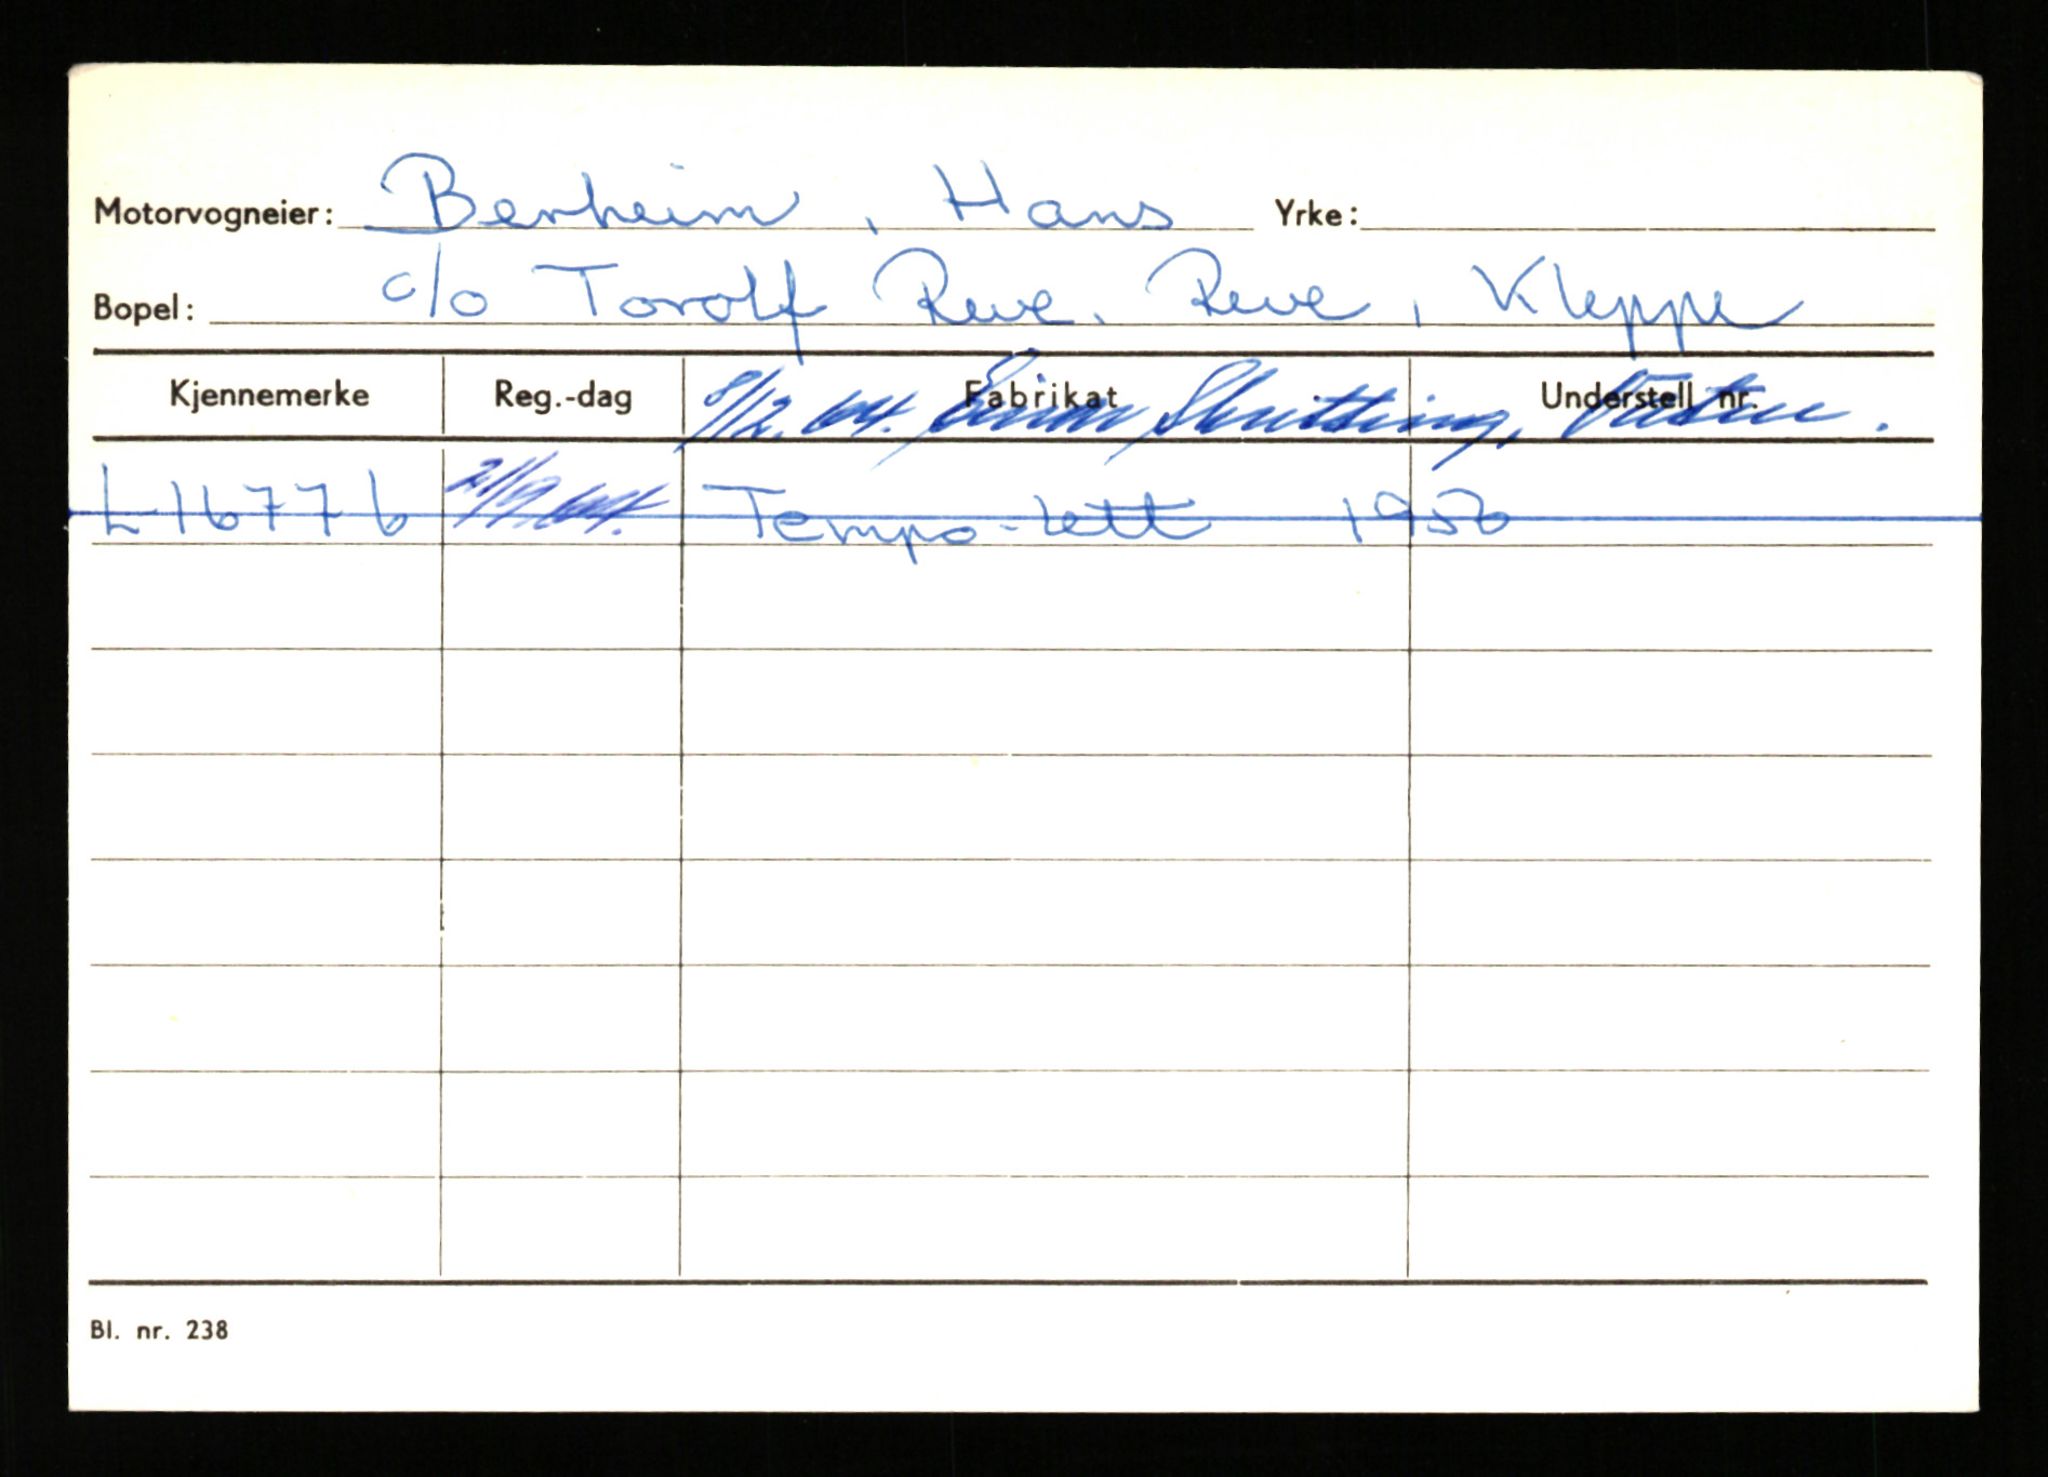 Motorvogneier: Berheim, Hans Yrke:
Bopel: c/o Torolf Reve. Reve, Kleppe
Kjennemerke Reg.-dag Fabrikat Understell nr.
8/2. 64.
L-16776 21/9. 64. Tempo-Lett 1956
Bl. nr. 238